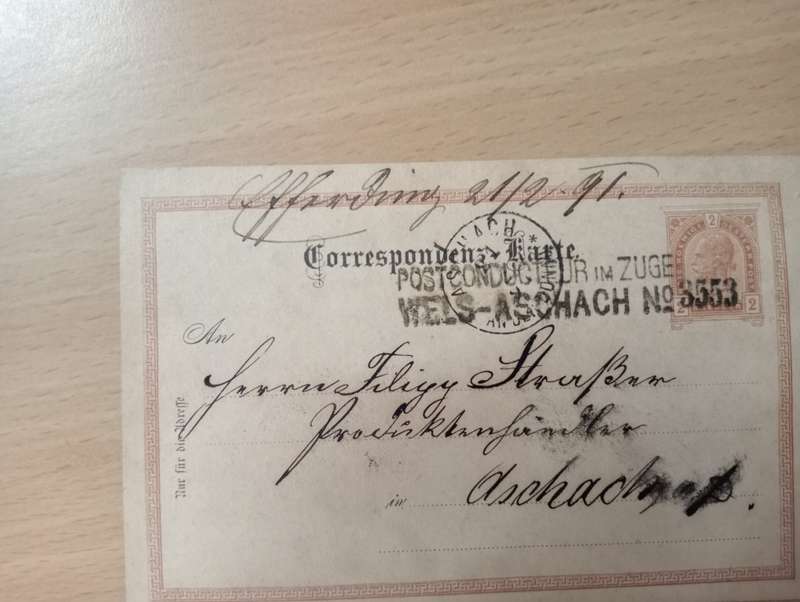 Efferding 21/2 91.
Correspondenz-Karte.
2
ASCHACH
AN DER DONAU
POSTCONDUCTEUR IM ZUGE
WELS-ASCHACH No 3553
2 2
An
Herrn Filipp Straßer
Produktenhändler
in Aschach
Nur für die Adresse